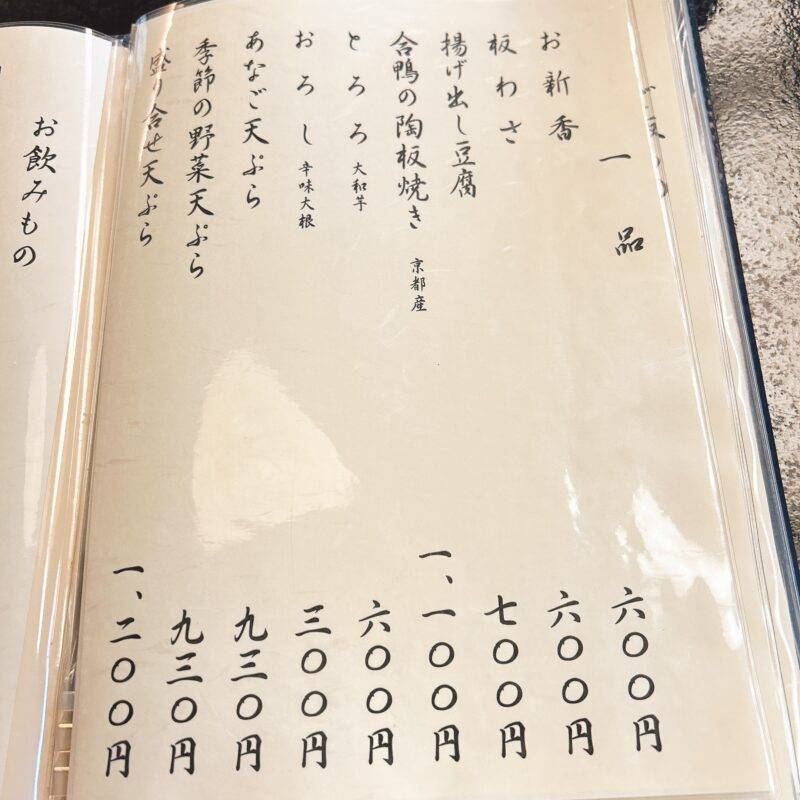 一品
お新香 六〇〇円
板わさ 六〇〇円
揚げ出し豆腐 七〇〇円
合鴨の陶板焼き 京都産 一、一〇〇円
とろろ 大和芋 六〇〇円
おろし 辛味大根 三〇〇円
あなご天ぷら 九三〇円
季節の野菜天ぷら 九三〇円
盛り合せ天ぷら 一、二〇〇円
お飲みもの